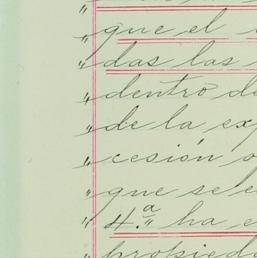 " que el
" das las
" dentro d
" de la ex
" cesión o
" que sele
" 4.ª ha e
propieda